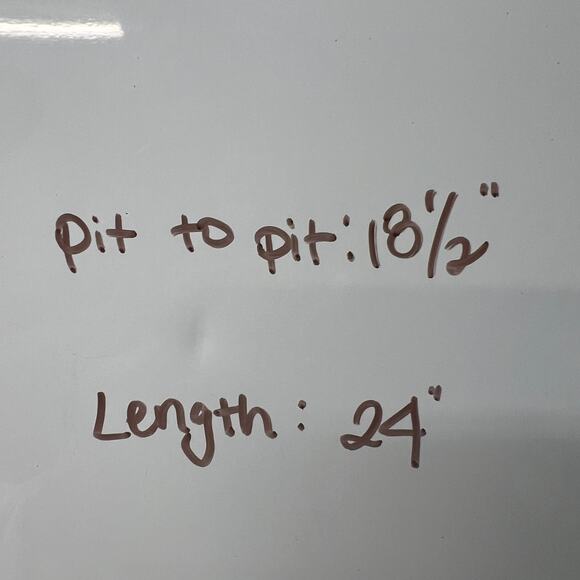 pit to pit: 18 1/2"
Length: 24"